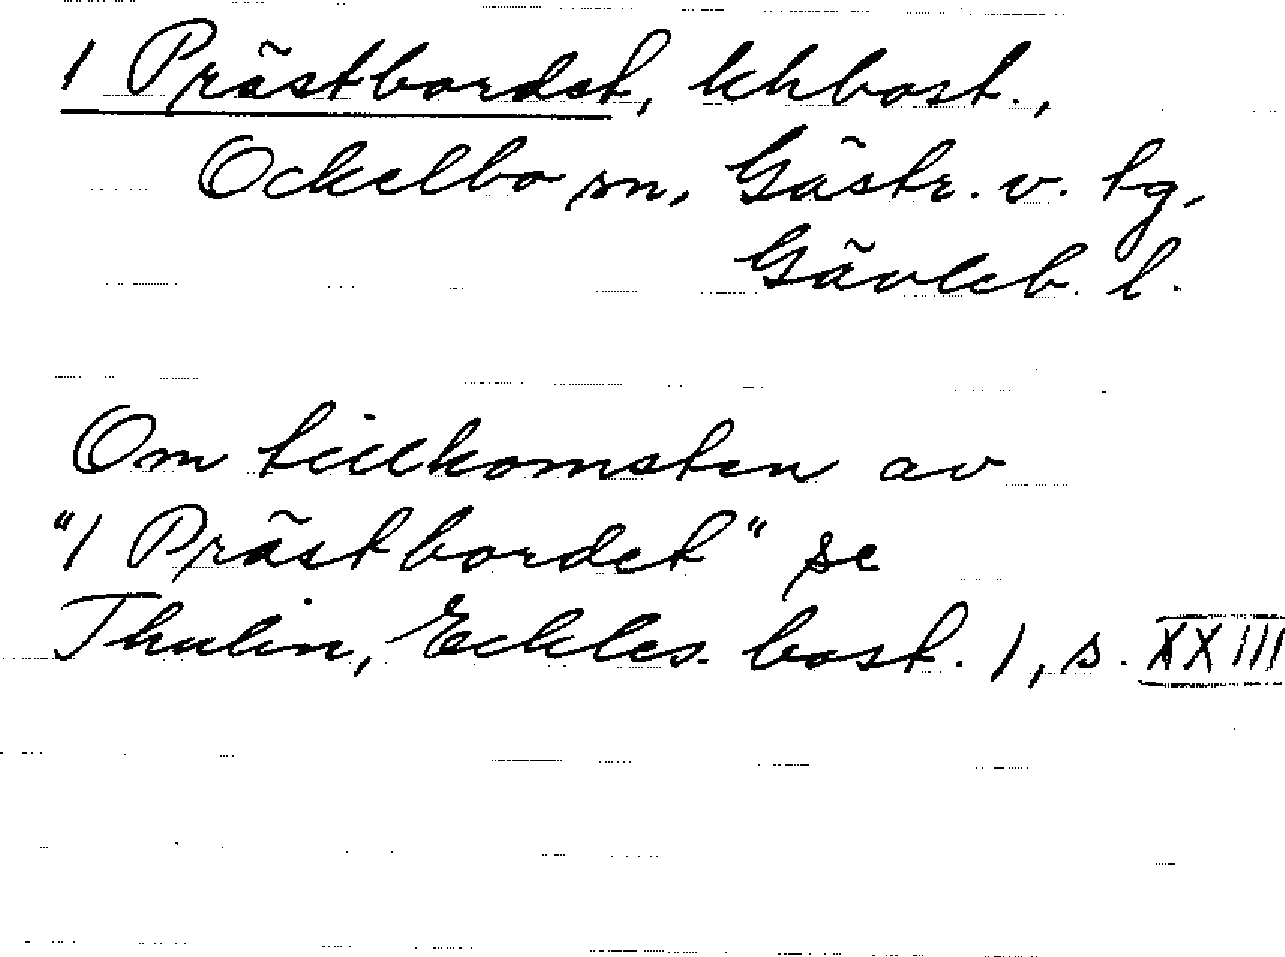 1 Prästbordet, khbost.,
Ockelbo sn, Gästr. v. tg,
Gävleb. l.
Om tillkomsten av
"1 Prästbordet" se
Thulin, Eckles. bost. 1, s. XXIII